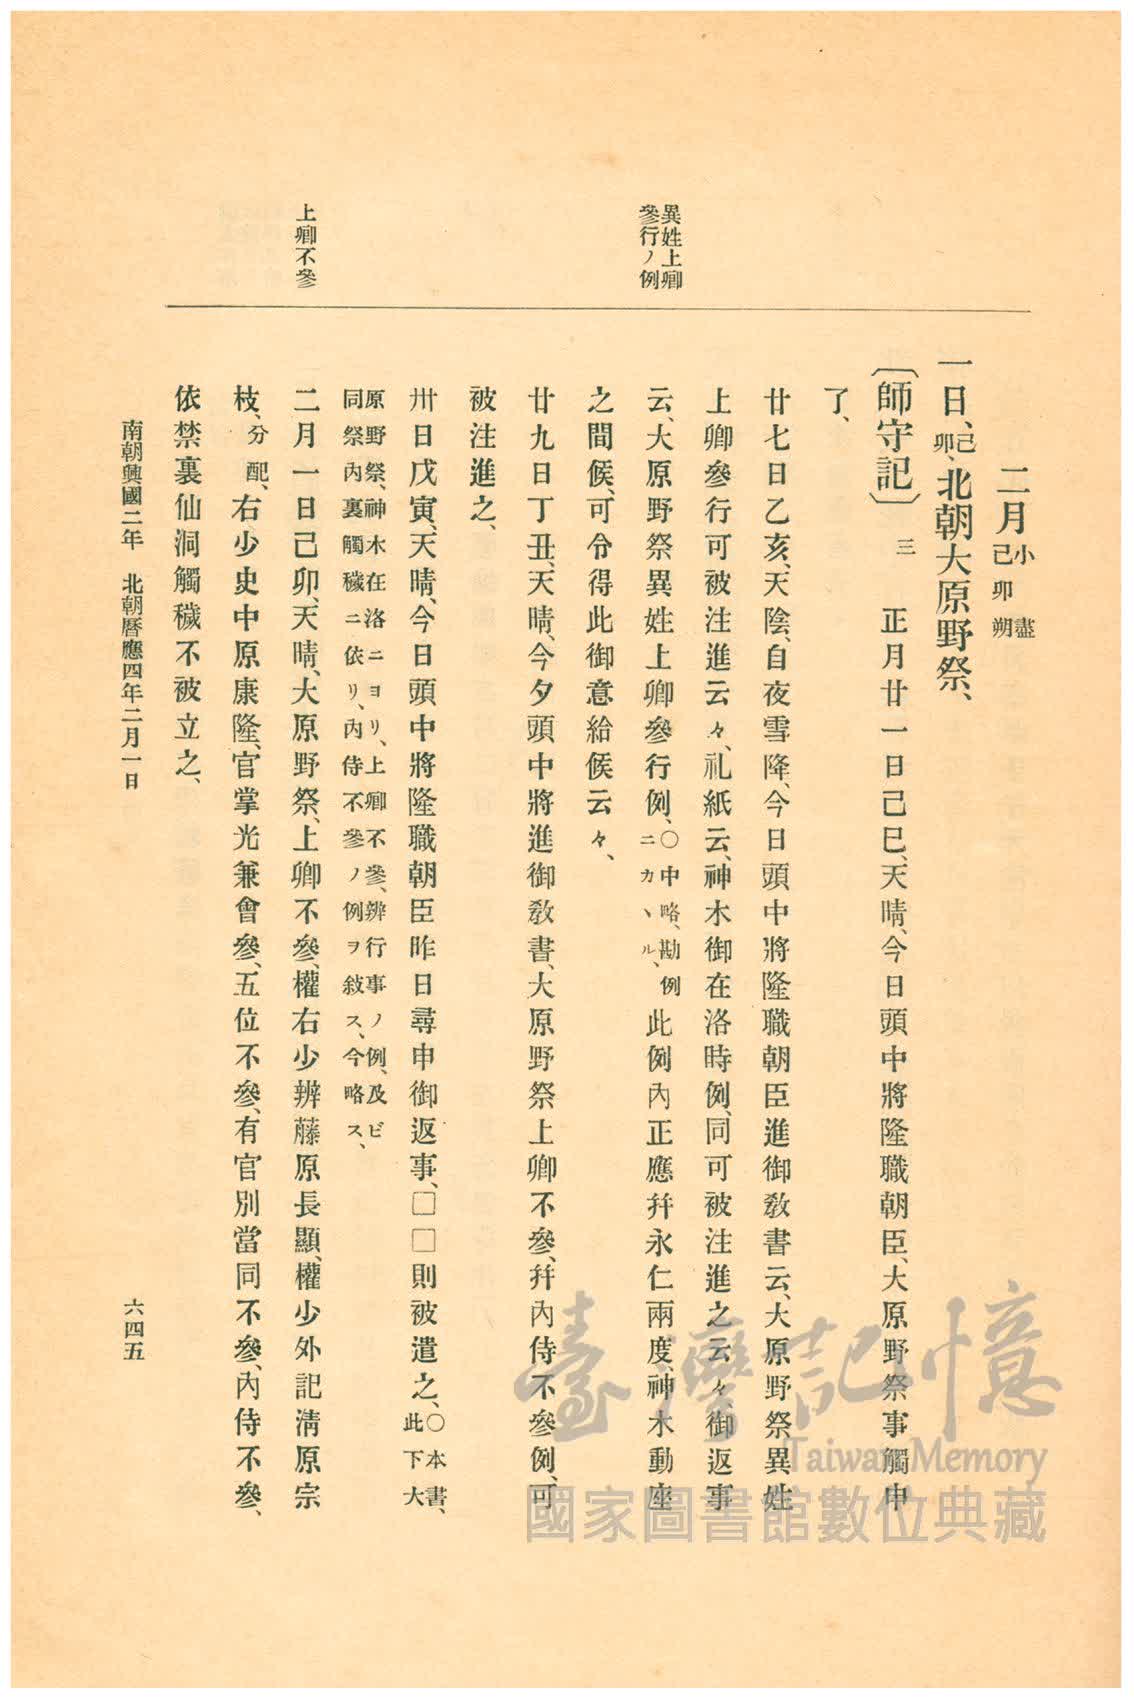 二月小盡己卯朔
一日、己卯、北朝大原野祭、
〔師守記〕三 正月廿一日己巳、天晴、今日頭中將隆職朝臣、大原野祭事觸申
了、
廿七日乙亥、天陰、自夜雪降、今日頭中將隆職朝臣進御敎書云、大原野祭異姓
上卿參行可被注進云々、礼紙云、神木御在洛時例、同可被注進之云々、御返事
云、大原野祭異姓上卿參行例、〇中略、勘例ニカヽル、此例內正應幷永仁兩度、神木動座
之間候、可令得此御意給候云々、
廿九日丁丑、天晴、今夕頭中將進御敎書、大原野祭上卿不參、幷內侍不參例、可
被注進之、
卅日戊寅、天晴、今日頭中將隆職朝臣昨日尋申御返事、□□則被遣之、〇本書、此下大
原野祭、神木在洛ニヨリ、上卿不參、辨行事ノ例、及ビ
同祭內裏觸穢ニ依リ、內侍不參ノ例ヲ敍ス、今略ス、
二月一日己卯、天晴、大原野祭、上卿不參、權右少辨藤原長顯、權少外記淸原宗
枝、分配、右少史中原康隆、官掌光兼會參、五位不參、有官別當同不參、內侍不參、
依禁裏仙洞觸穢不被立之、
異姓上卿
參行ノ例
上卿不參
南朝興國二年 北朝曆應四年二月一日
六四五
臺灣記憶
Taiwan Memory
國家圖書館數位典藏